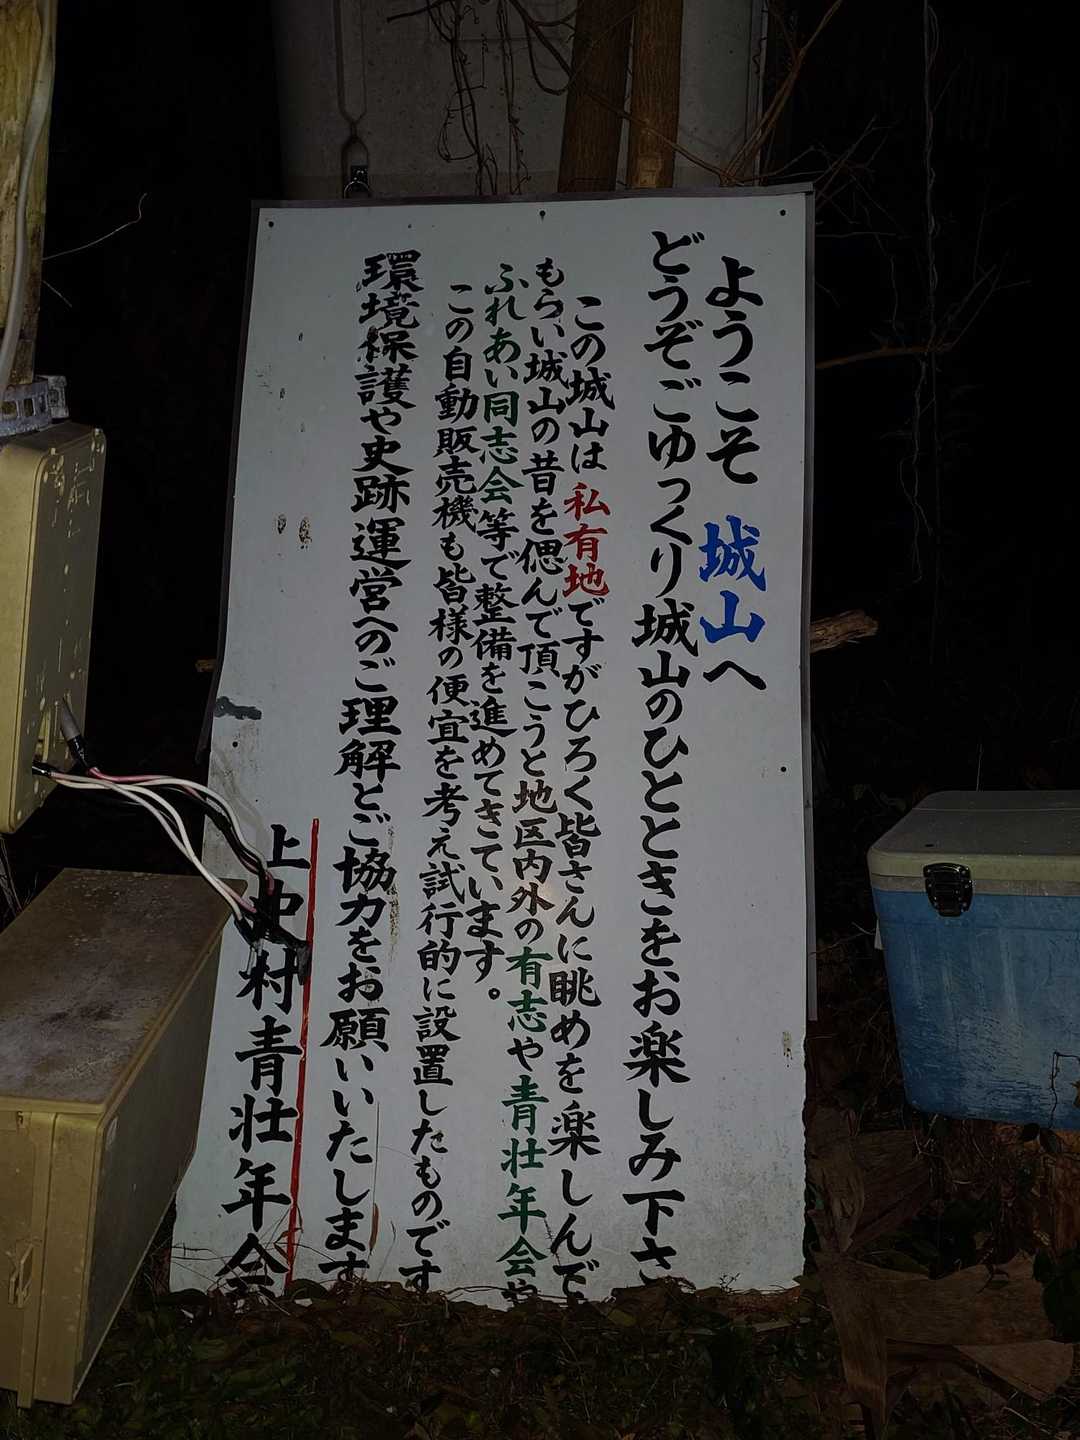 ようこそ 城山へ
どうぞごゆっくり城山のひとときをお楽しみ下さ
この城山は私有地ですがひろく皆さんに眺めを楽しんで
もらい城山の昔を偲んで頂こうと地区内外の有志や青壮年会や
ふれあい同志会等で整備を進めてきています。
この自動販売機も皆様の便宜を考え試行的に設置したものです
環境保護や史跡運営へのご理解とご協力をお願いいたします
上中村青壮年会